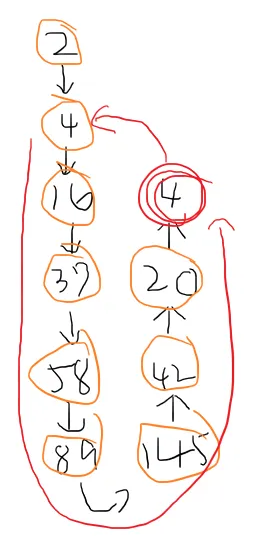 2
4
16
37
58
89
145
42
20
4